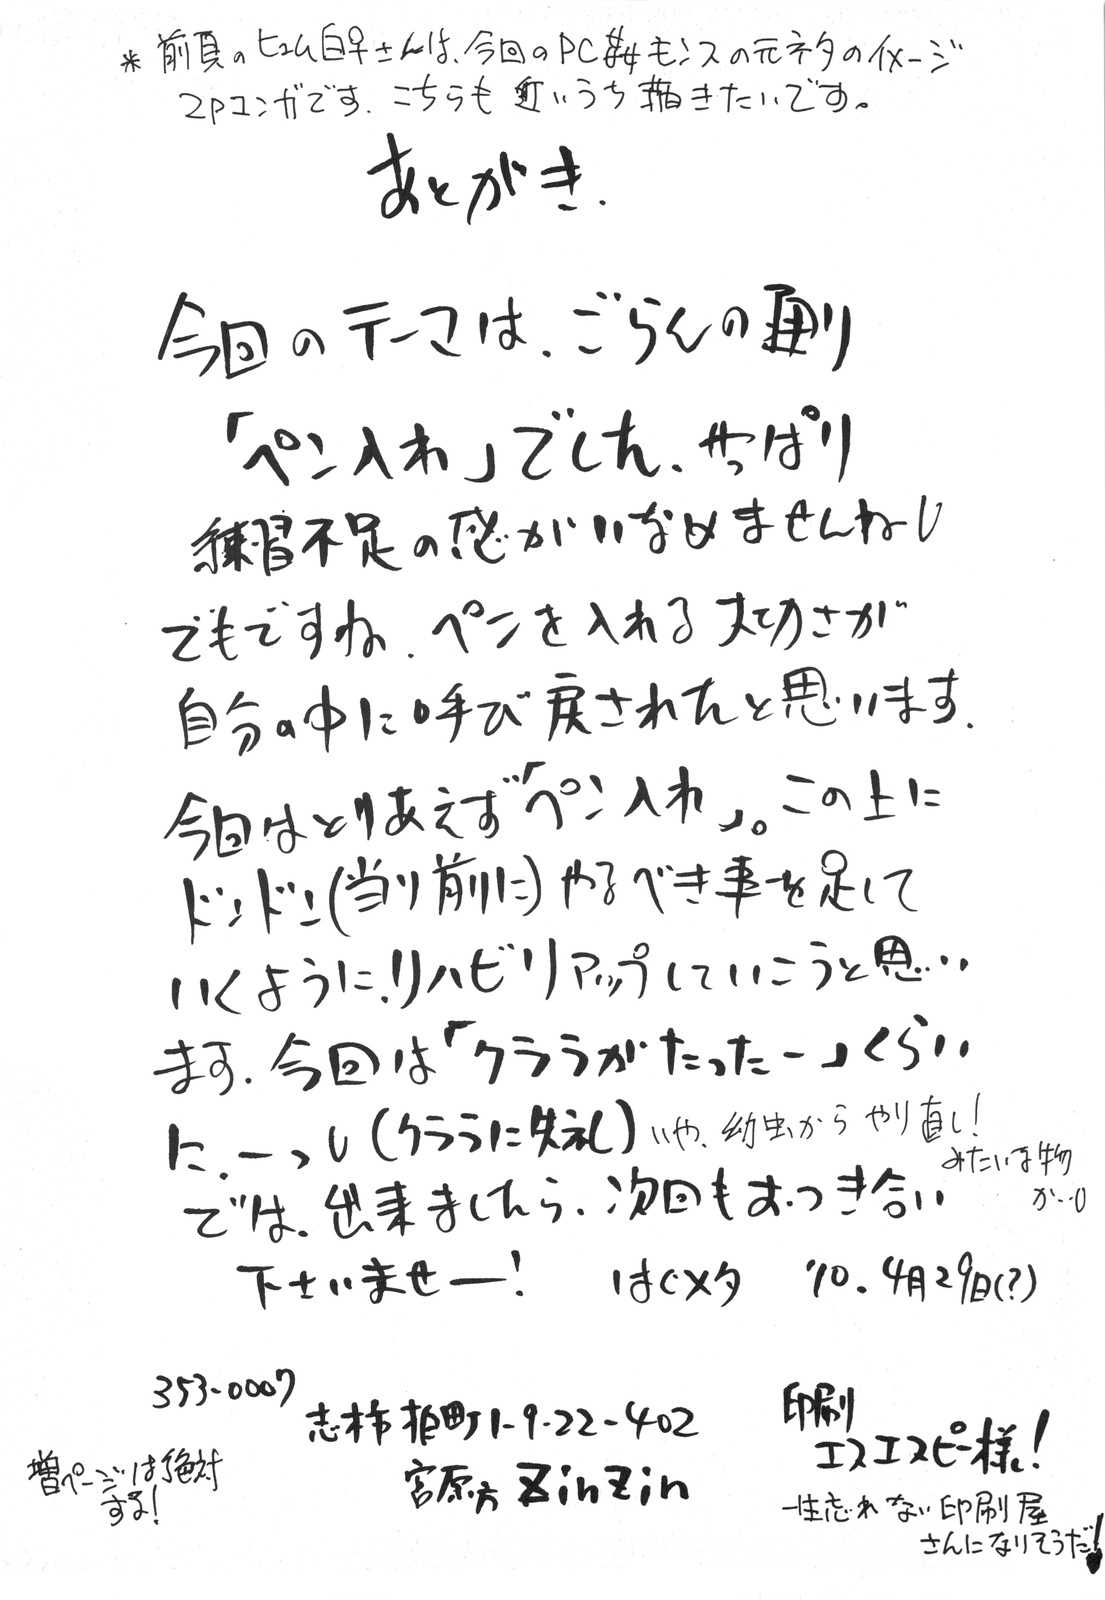 ＊前頁のヒュム白羊さんは、今回のPC弁モンスの元ネタのイメージ
2Pコンガです、こちらも近いうち描きたいです。
あとがき.
今回のテーマは、ごらんの通り
「ペン入れ」でした、やっぱり
練習不足の感がいなめませんねー
でもですね、ペンを入れる大切さが
自分の中に呼び戻されたと思います.
今回はとりあえず「ペン入れ」。この上に
ドンドン(当り前に)やるべき事を足して
いくように、リハビリアップしていこうと思い
ます、今回は「クララがたったー」くらい
に、ーっし(クララに失礼)いや、幼虫からやり直し!
みたいな物
か‥
では、出来ましたら、次回もおつき合い
下さいませー! はぐメタ '10.4月29日(?)
353-0007
志木市柏町1-9-22-402
宮原方 ZinZin
増ページは絶対
する!
印刷
エスエスピー様!
一生忘れない印刷屋
さんになりそうだ!